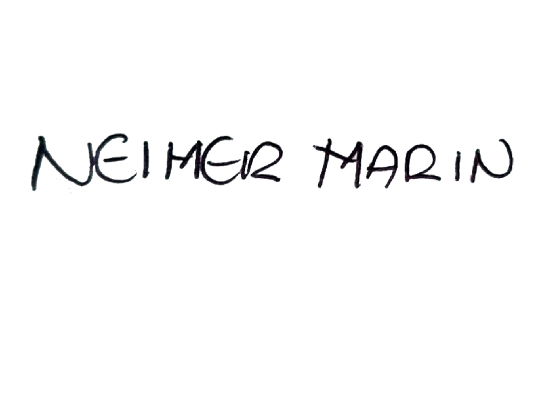 NEIMER MARIN